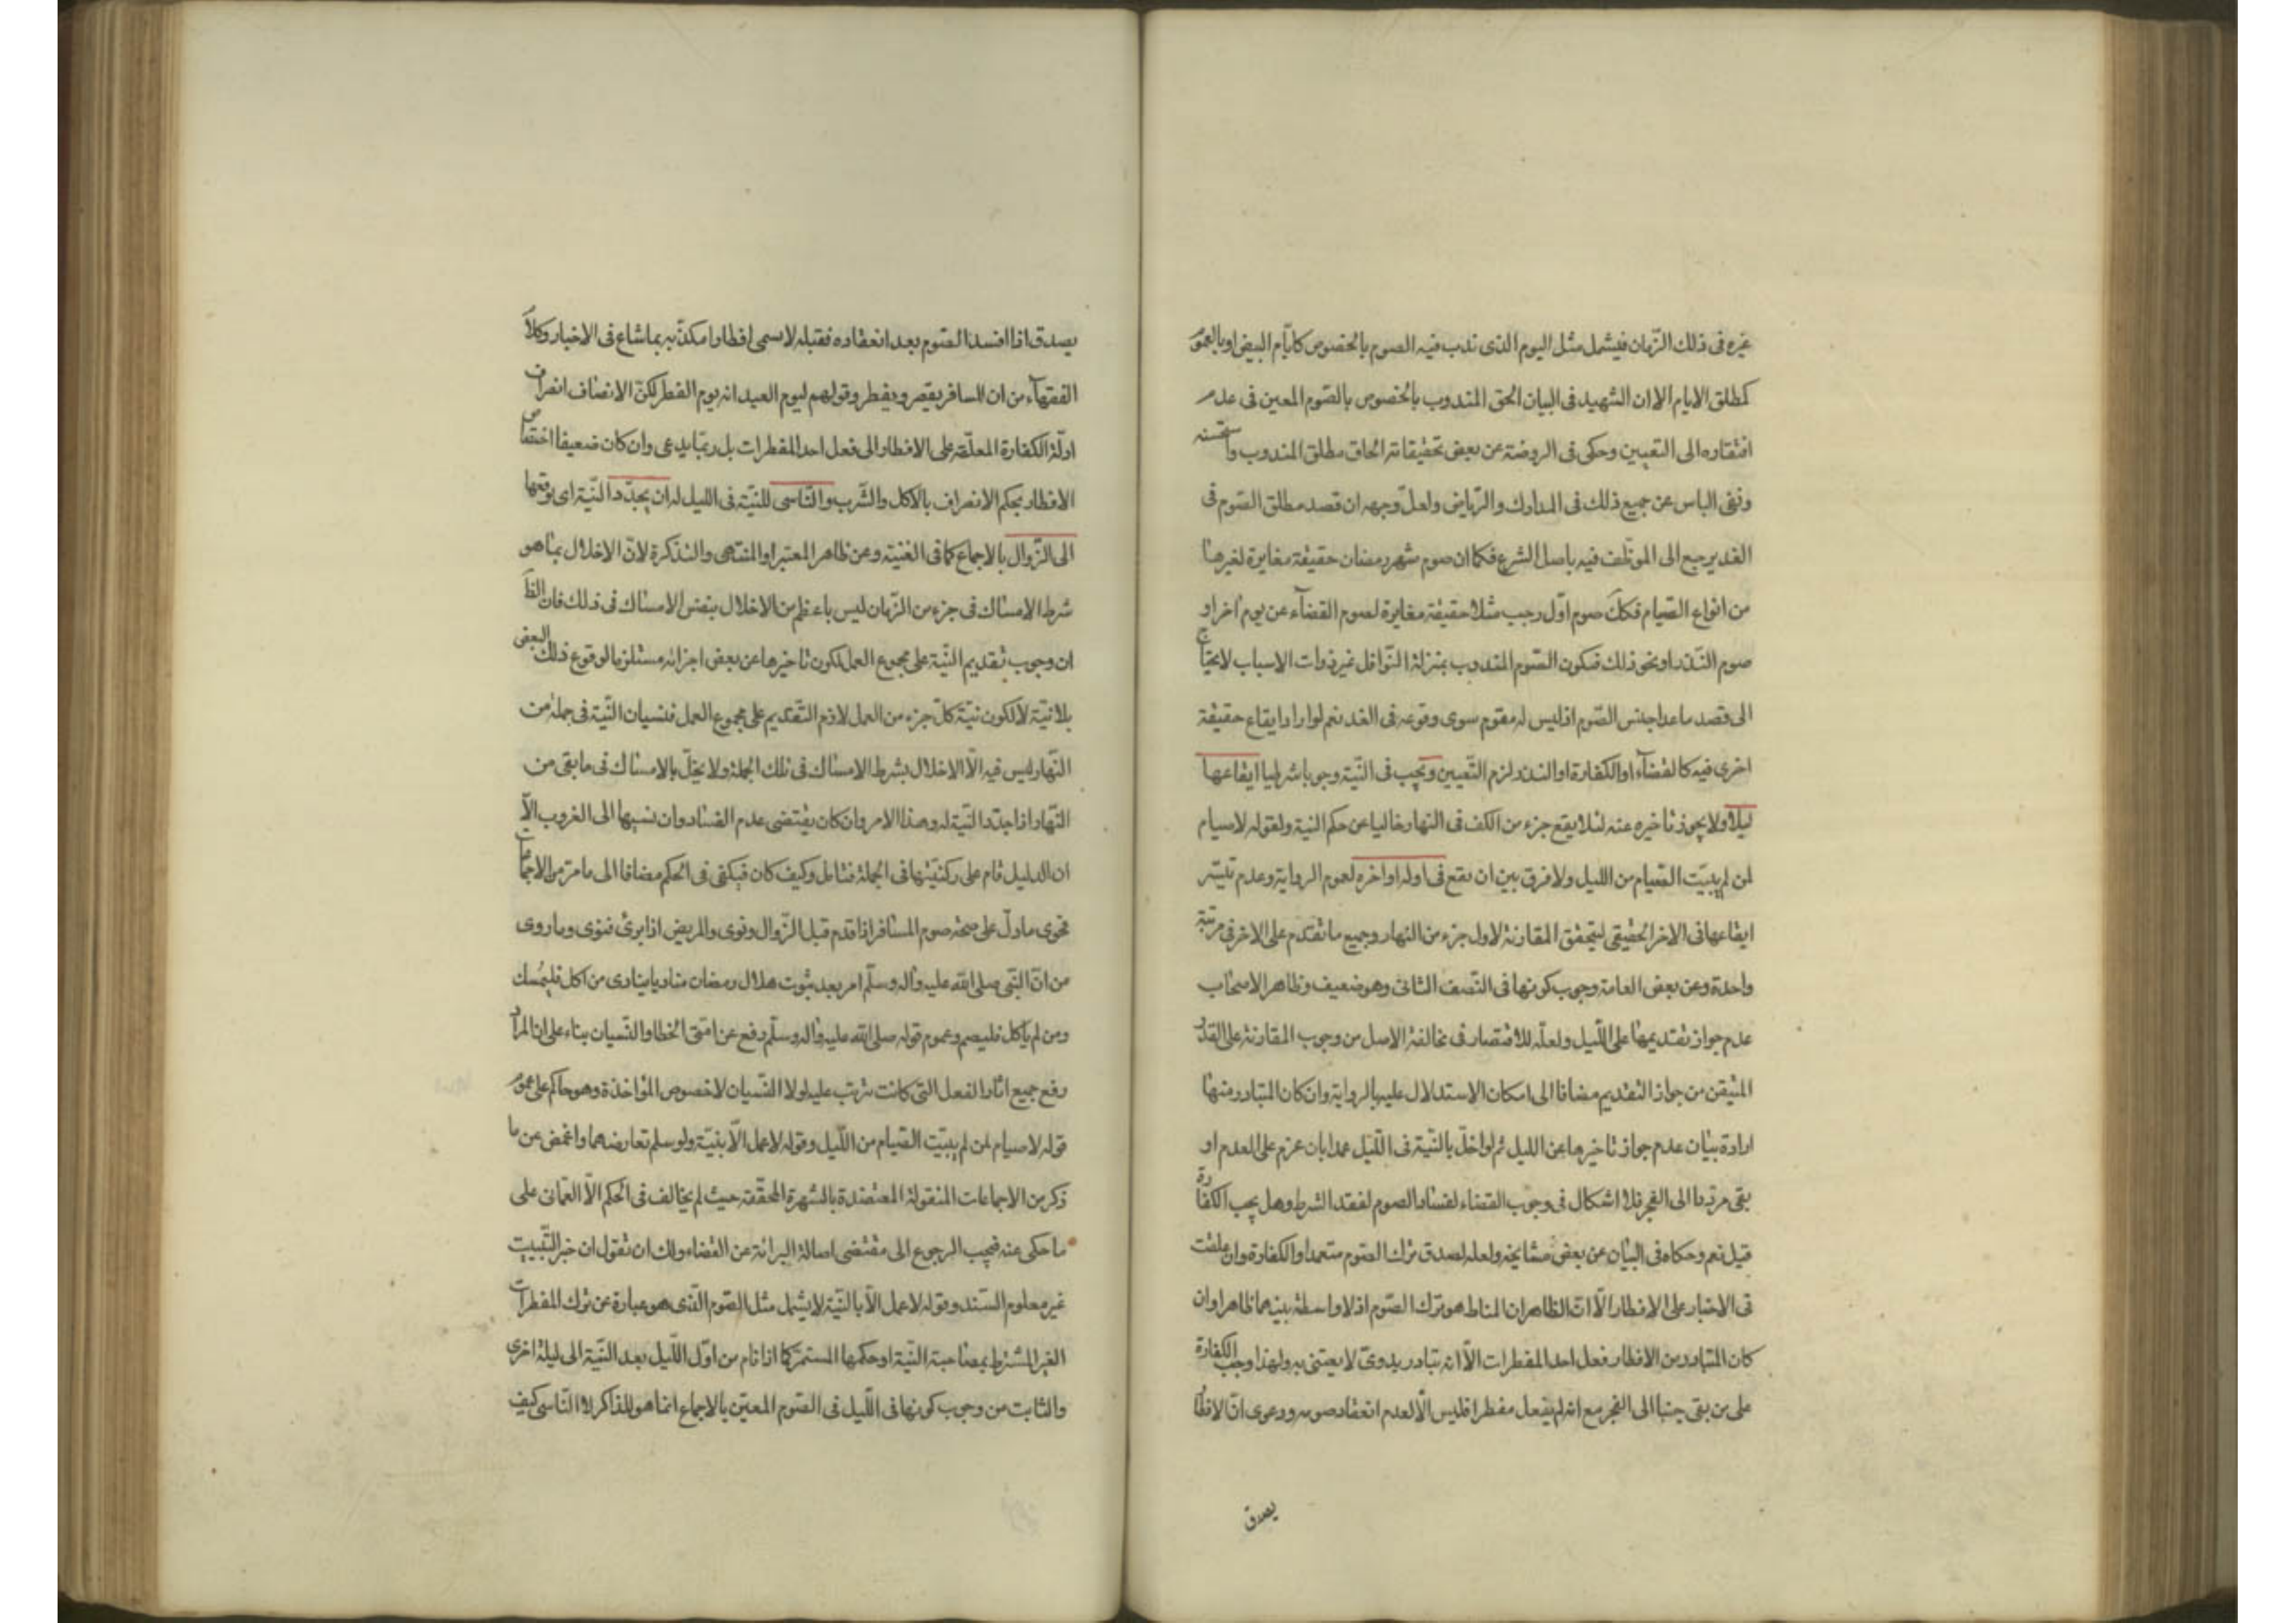 غيره فى ذلك الزّمان فيشمل مثل اليوم الذى ندب فيه الصوم بالخصوص كايّام البيض او بالعموم
كمطلق الايام الا ان الشهيد فى البيان الحق المندوب بالخصوص بالصّوم المعين فى عدم
افتقاره الى التعيين وحكى فى الروضة عن بعض تحقيقاته الحاق مطلق المندوب واستحسنه
ونفى الباس عن جميع ذلك فى المدارك والرّياض ولعلّ وجهه ان قصد مطلق الصّوم فى
الغد يرجع الى الموظّف فيه باصل الشرع فكما ان صوم شهر رمضان حقيقة مغايرة لغيرها
من انواع الصّيام فكك صوم اوّل رجب مثلا حقيقة مغايرة لصوم القضآء عن يوم اخر او
صوم النّذر او نحو ذلك فيكون الصّوم المندوب بمنزلة النّوافل غير ذوات الاسباب لا يحتاج
الى قصد ما عدا جنس الصّوم اذ ليس له مقوم سوى وقوعه فى الغد نعم لو اراد ايقاع حقيقة
اخرى فيه كالقضآء او الكفارة او النذر لزم التّعيين ويجب فى النّية وجوبا شرطيا ايقاعها
ليلا ولا يجوز تاخيره عنه لئلا يقع جزء من الكف فى النهار خاليا عن حكم النية ولقوله لا صيام
لمن لم يبيّت الصّيام من الليل ولا فرق بين ان تقع فى اوله او اخره لعموم الرواية وعدم تيسّر
ايقاعها فى الاخر الحقيقى ليتحقق المقارنة لاول جزء من النهار وجميع ما تقدم على الاخر فى مرتبة
واحدة وعن بعض العامة وجوب كونها فى النّصف الثانى وهو ضعيف وظاهر الاصحاب
عدم جواز تقديمها على اللّيل ولعلّه للاقتصار فى مخالفة الاصل من وجوب المقارنة على القدر
المتيقن من جواز التقديم مضافا الى امكان الاستدلال عليه بالرواية وان كان المتبادر منها
ارادة بيان عدم جواز تاخيرها عن الليل ثم لو اخلّ بالنّية فى اللّيل عمدا بان عزم على العدم او
بقى مرددا الى الفجر فلا اشكال فى وجوب القضاء لفساد الصوم لفقد الشرط وهل يجب الكفارة
قيل نعم وحكاه فى البيان عن بعض مشايخه ولعله لصدق ترك الصّوم متعمدا والكفارة وان علقت
فى الاخبار على الافطار الّا انّ الظاهر ان المناط هو ترك الصّوم اذ لا واسطة بينهما ظاهرا وان
كان المتبادر من الافطار فعل احد المفطرات الّا انه تبادر بدوىّ لا يعتنى به ولهذا وجب الكفارة
على من بقى جنبا الى الفجر مع انه لم يفعل مفطرا فليس الّا لعدم انعقاد صومه ودعوى انّ الافطار
يصدق
يصدق اذا افسد الصّوم بعد انعقاده فقبله لا يسمى افطارا مكذّبه بما شاع فى الاخبار وكلام
الفقهآء من ان المسافر يقصر ويفطر وقولهم ليوم العيد انه يوم الفطر لكنّ الانصاف انصراف
ادلّة الكفارة المعلّقة على الافطار الى فعل احد المفطرات بل ربّما يدعى وان كان ضعيفا اختصاص
الافطار بحكم الانصراف بالاكل والشّرب والنّاسى للنيّة فى الليل له ان يجدّد النّية اى يوقعها
الى الزّوال بالاجماع كما فى الغنية وعن ظاهر المعتبر او المنتهى والتذكرة لانّ الاخلال بما هو
شرط الامساك فى جزء من الزّمان ليس باعظم من الاخلال بنفس الامساك فى ذلك فان الظ
ان وجوب تقديم النّية على مجموع العمل لكون تاخيرها عن بعض اجزائه مستلزما لوقوع ذلك البعض
بلا نيّة لا لكون نيّة كلّ جزء من العمل لازم التّقديم على مجموع العمل فنسيان النّية فى جملة من
النّهار ليس فيه الّا الاخلال بشرط الامساك فى تلك الجملة ولا يخلّ بالامساك فى ما بقى من
النّهار اذا جدّد النّية له وهذا الامر وان كان يقتضى عدم الفساد وان نسيها الى الغروب الّا
ان الدليل قام على ركنيّتها فى الجملة فتامل وكيف كان فيكفى فى الحكم مضافا الى ما مرّ من الاجماعات
فحوى ما دلّ على صحّة صوم المسافر اذا قدم قبل الزّوال ونوى والمريض اذا برئ فنوى وما روى
من انّ النّبى صلى الله عليه واله وسلّم امر بعد ثبوت هلال رمضان مناديا ينادى من اكل فليمسك
ومن لم ياكل فليصم وعموم قوله صلى الله عليه واله وسلّم رفع عن امتى الخطا والنّسيان بناء على ان المراد
رفع جميع اثار الفعل التى كانت تترتب عليه لولا النّسيان لا خصوص المؤاخذة وهو حاكم على عموم
قوله لا صيام لمن لم يبيّت الصّيام من اللّيل وقوله لا عمل الّا بنيّة ولو سلم تعارضهما واغمض عن ما
ذكر من الاجماعات المنقولة المعتضدة بالشّهرة المحقّقة حيث لم يخالف فى الحكم الّا العمّانى على
ما حكى عنه فيجب الرجوع الى مقتضى اصالة البرائة عن القضاء ولك ان تقول ان خبر التّبييت
غير معلوم السّند وقوله لا عمل الّا بالنّية لا يشمل مثل الصّوم الّذى هو عبارة عن ترك المفطرات
الغير المشترط بمصاحبة النّية او حكمها المستمر كما اذا نام من اوّل اللّيل بعد النّية الى ليلة اخرى
والثابت من وجوب كونها فى اللّيل فى الصّوم المعيّن بالاجماع انما هو للذاكر لا النّاسى كيف